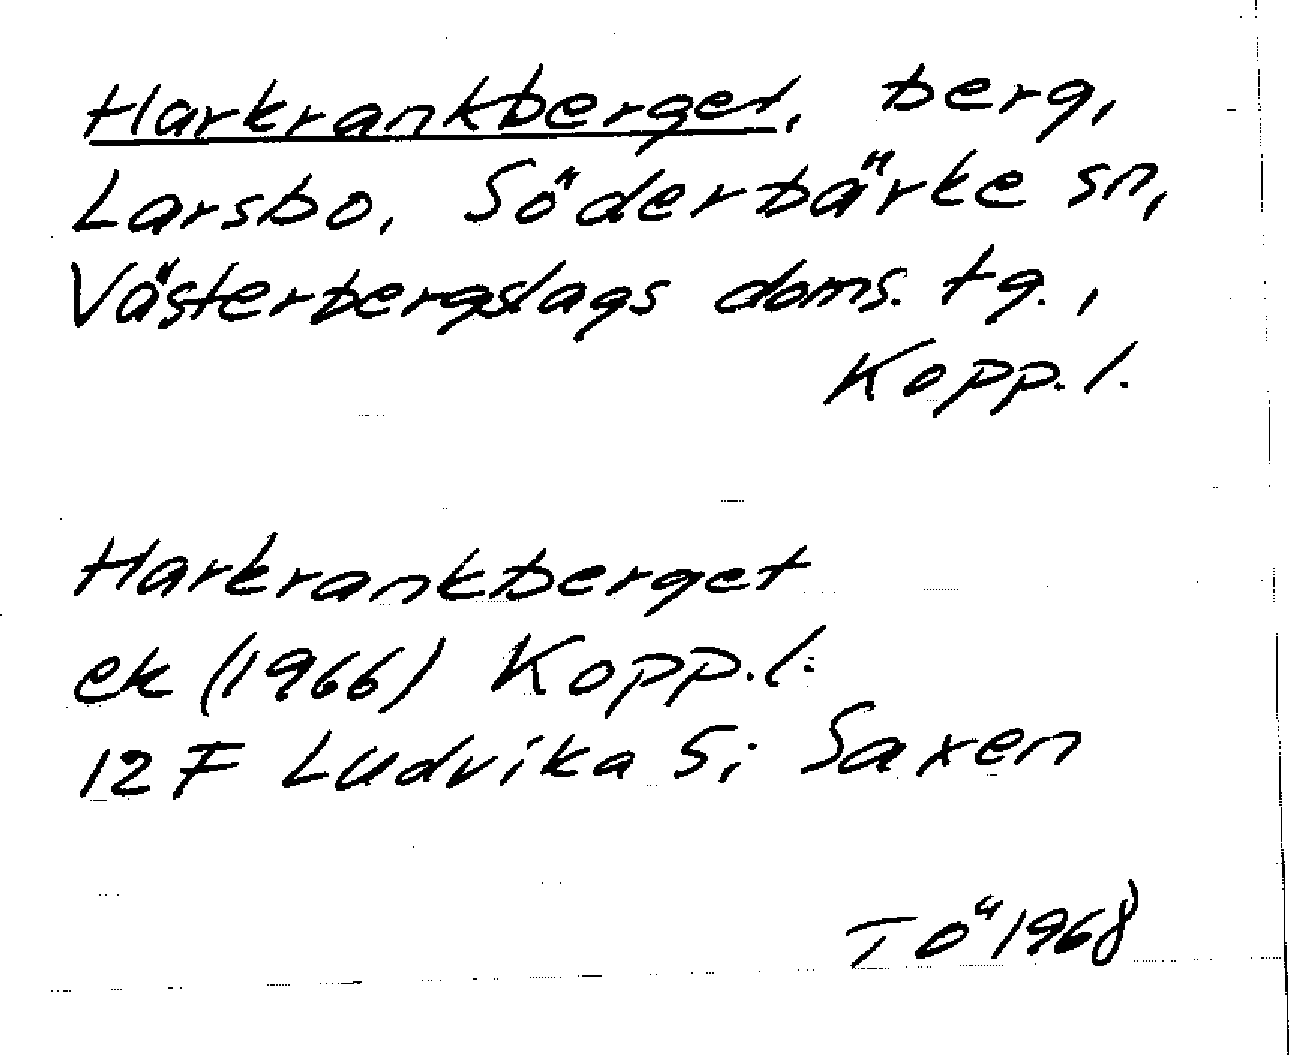 Harkrankberget, berg,
Larsbo, Söderbärke sn,
Västerbergslags doms. tg.,
Kopp. l.
Harkrankberget
ek (1966) Kopp. l.
12 F Ludvika S; Saxen
TÖ 1968